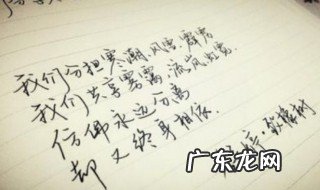 我们分担寒潮、风雷、霹雳
我们共享雾霭、流岚、虹霓
仿佛永远分离
却又终身相依.
致橡树
广东龙网